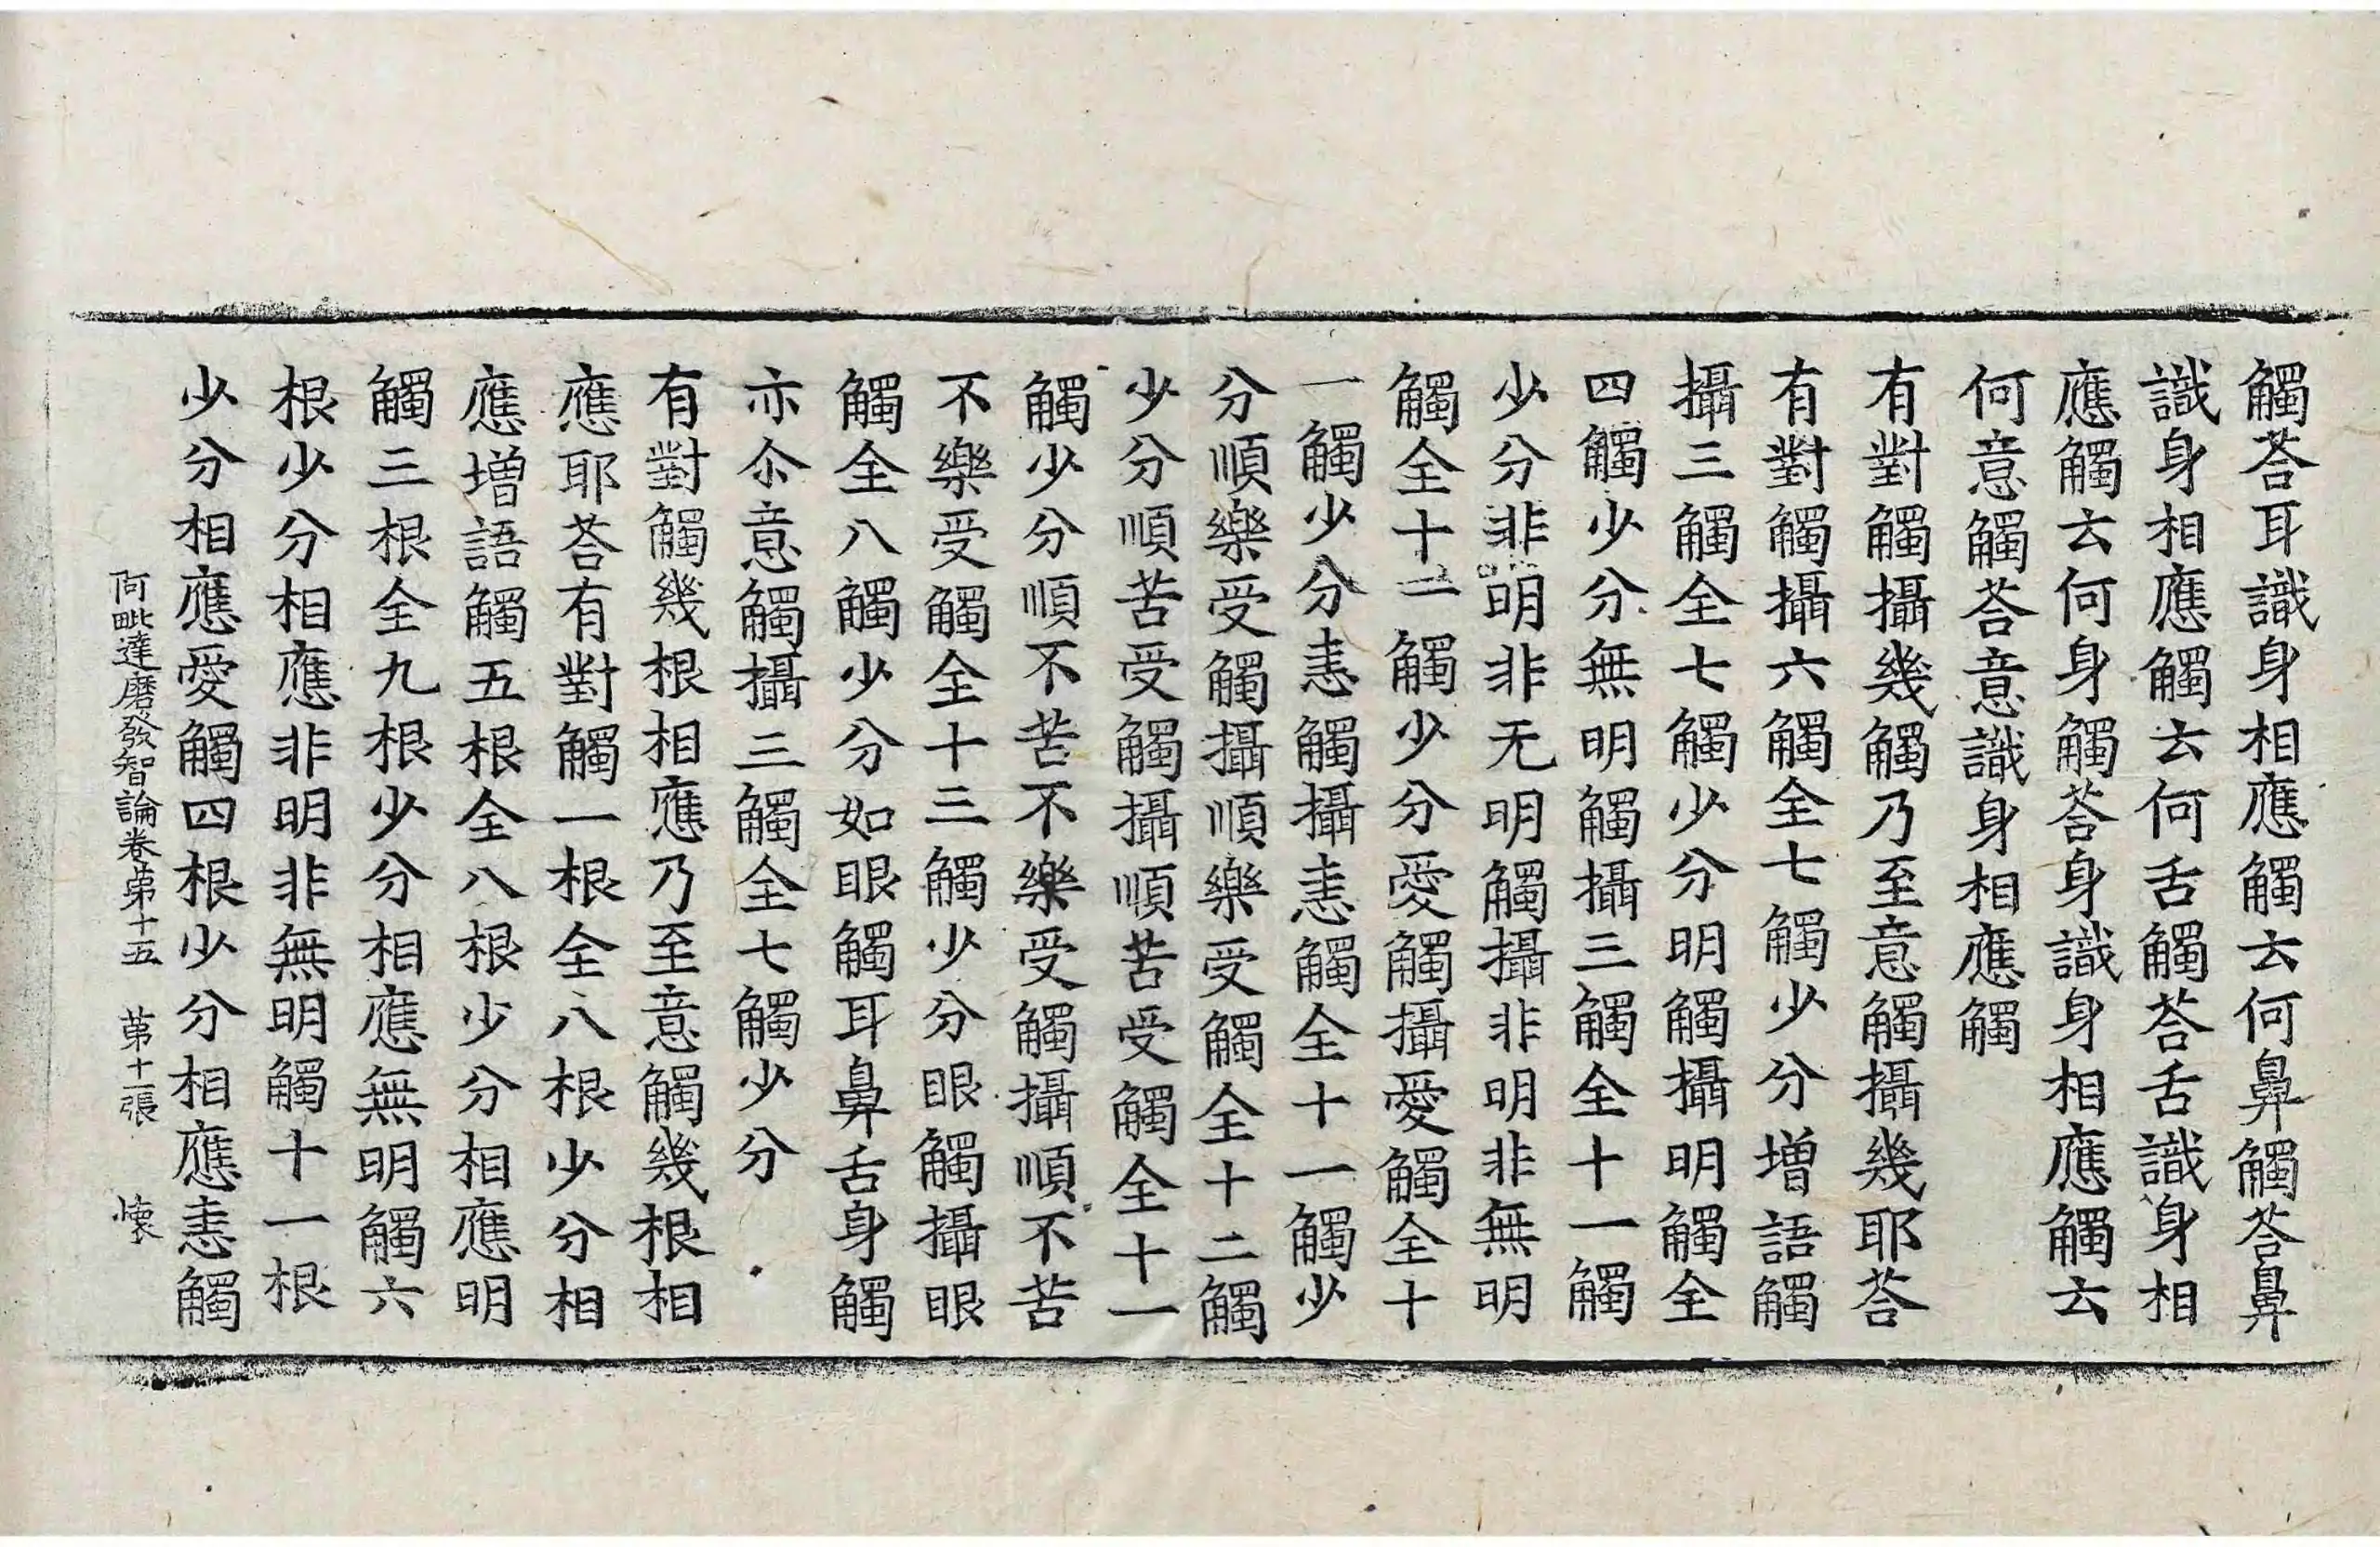 觸荅耳識身相應觸云何鼻觸荅鼻
識身相應觸云何舌觸荅舌識身相
應觸云何身觸荅身識身相應觸云
何意觸荅意識身相應觸
有對觸攝幾觸乃至意觸攝幾耶荅
有對觸攝六觸全七觸少分增語觸
攝三觸全七觸少分明觸攝明觸全
四觸少分無明觸攝三觸全十一觸
少分非明非无明觸攝非明非無明
觸全十二觸少分愛觸攝愛觸全十
一觸少分恚觸攝恚觸全十一觸少
分順樂受觸攝順樂受觸全十二觸
少分順苦受觸攝順苦受觸全十一
觸少分順不苦不樂受觸攝順不苦
不樂受觸全十三觸少分眼觸攝眼
觸全八觸少分如眼觸耳鼻舌身觸
亦尒意觸攝三觸全七觸少分
有對觸幾根相應乃至意觸幾根相
應耶荅有對觸一根全八根少分相
應增語觸五根全八根少分相應明
觸三根全九根少分相應無明觸六
根少分相應非明非無明觸十一根
少分相應愛觸四根少分相應恚觸
阿毗達磨發智論卷第十五 第十一張 懷